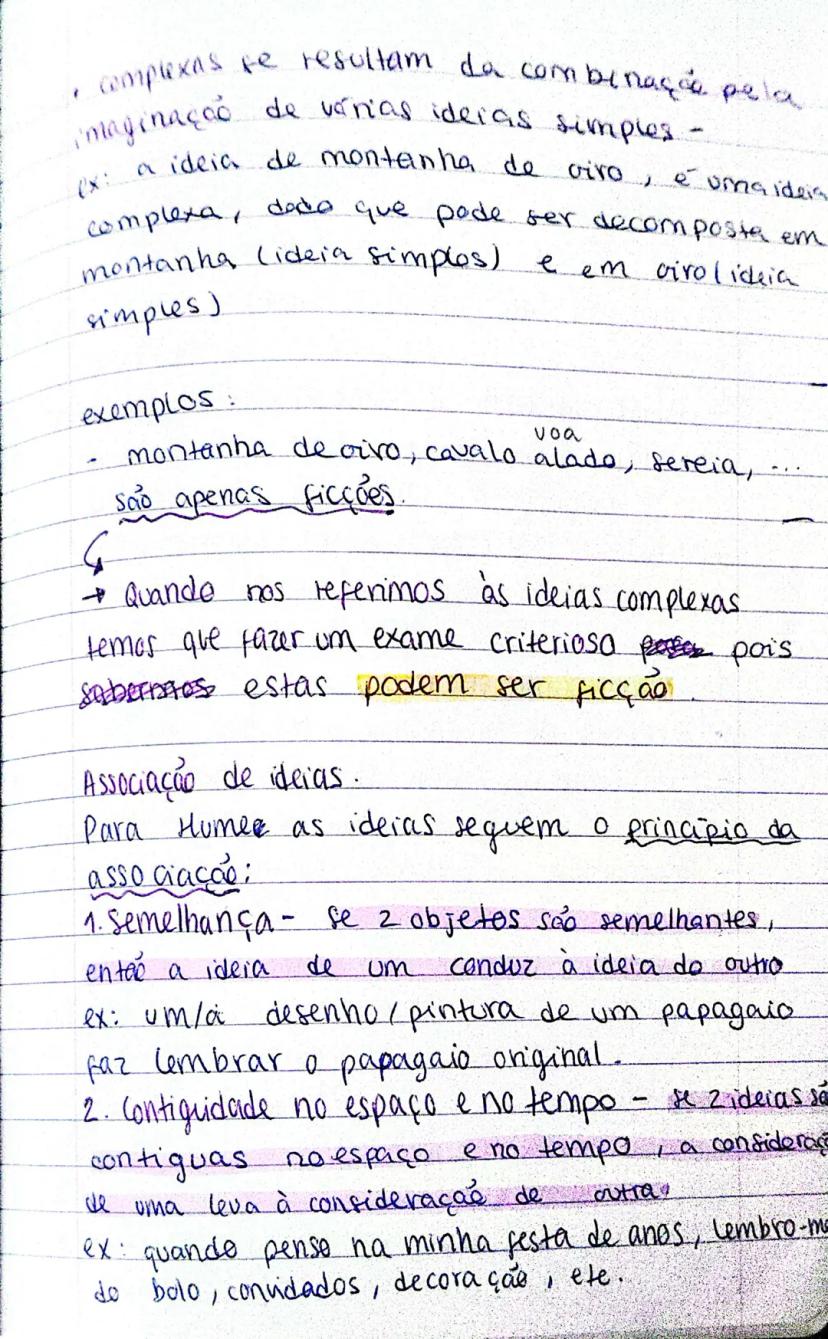 • complexas se resultam da combinação pela
imaginação de várias ideias simples -
ex: a ideia de montanha de oiro, é uma ideia
complexa, dado que pode ser decomposta em
montanha (ideia simples) e em oiro (ideia
simples)
exemplos:
- montanha de oiro, cavalo alado, sereia, ...
voa
são apenas ficções.
→ Quando nos referimos às ideias complexas
temos que fazer um exame criterioso pois
estas podem ser ficção.
Associação de ideias.
Para Hume as ideias seguem o princípio da
associação:
1. Semelhança - se 2 objetos são semelhantes,
então a ideia de um conduz à ideia do outro
ex: um/a desenho/pintura de um papagaio
faz lembrar o papagaio original.
2. Contiguidade no espaço e no tempo - se 2 ideias sã
contiguas no espaço e no tempo, a consideraç
de uma leva à consideração de outra.
ex: quando penso na minha festa de anos, lembro-m
do bolo, convidados, decoração, etc.